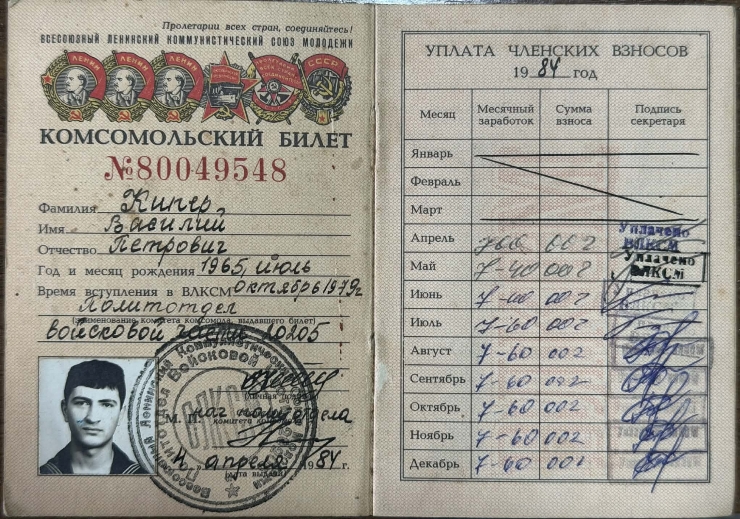 Пролетарии всех стран, соединяйтесь!
ВСЕСОЮЗНЫЙ ЛЕНИНСКИЙ КОММУНИСТИЧЕСКИЙ СОЮЗ МОЛОДЕЖИ
ЛЕНИН ЛЕНИН ЛЕНИН СССР
КОМСОМОЛЬСКИЙ БИЛЕТ
№80049548
Фамилия Кипер
Имя Василий
Отчество Петрович
Год и месяц рождения 1965, июль
Время вступления в ВЛКСМ октябрь 1979г
Политотдел
(наименование комитета комсомола, выдавшего билет)
войсковой части 20205
(личная подпись)
М. П. нач политотдела
комитета комсомола
4 апреля 1984 г.
(дата выдачи)
УПЛАТА ЧЛЕНСКИХ ВЗНОСОВ
1984 год
Месяц Месячный заработок Сумма взноса Подпись секретаря
Январь
Февраль
Март
Апрель 7 00 002 Уплачено ВЛКСМ
Май 7-40 002 Уплачено ВЛКСМ
Июнь 7-40 002
Июль 7-60 002
Август 7-60 002
Сентябрь 7-60 002
Октябрь 7-60 002
Ноябрь 7-60 002
Декабрь 7-60 002